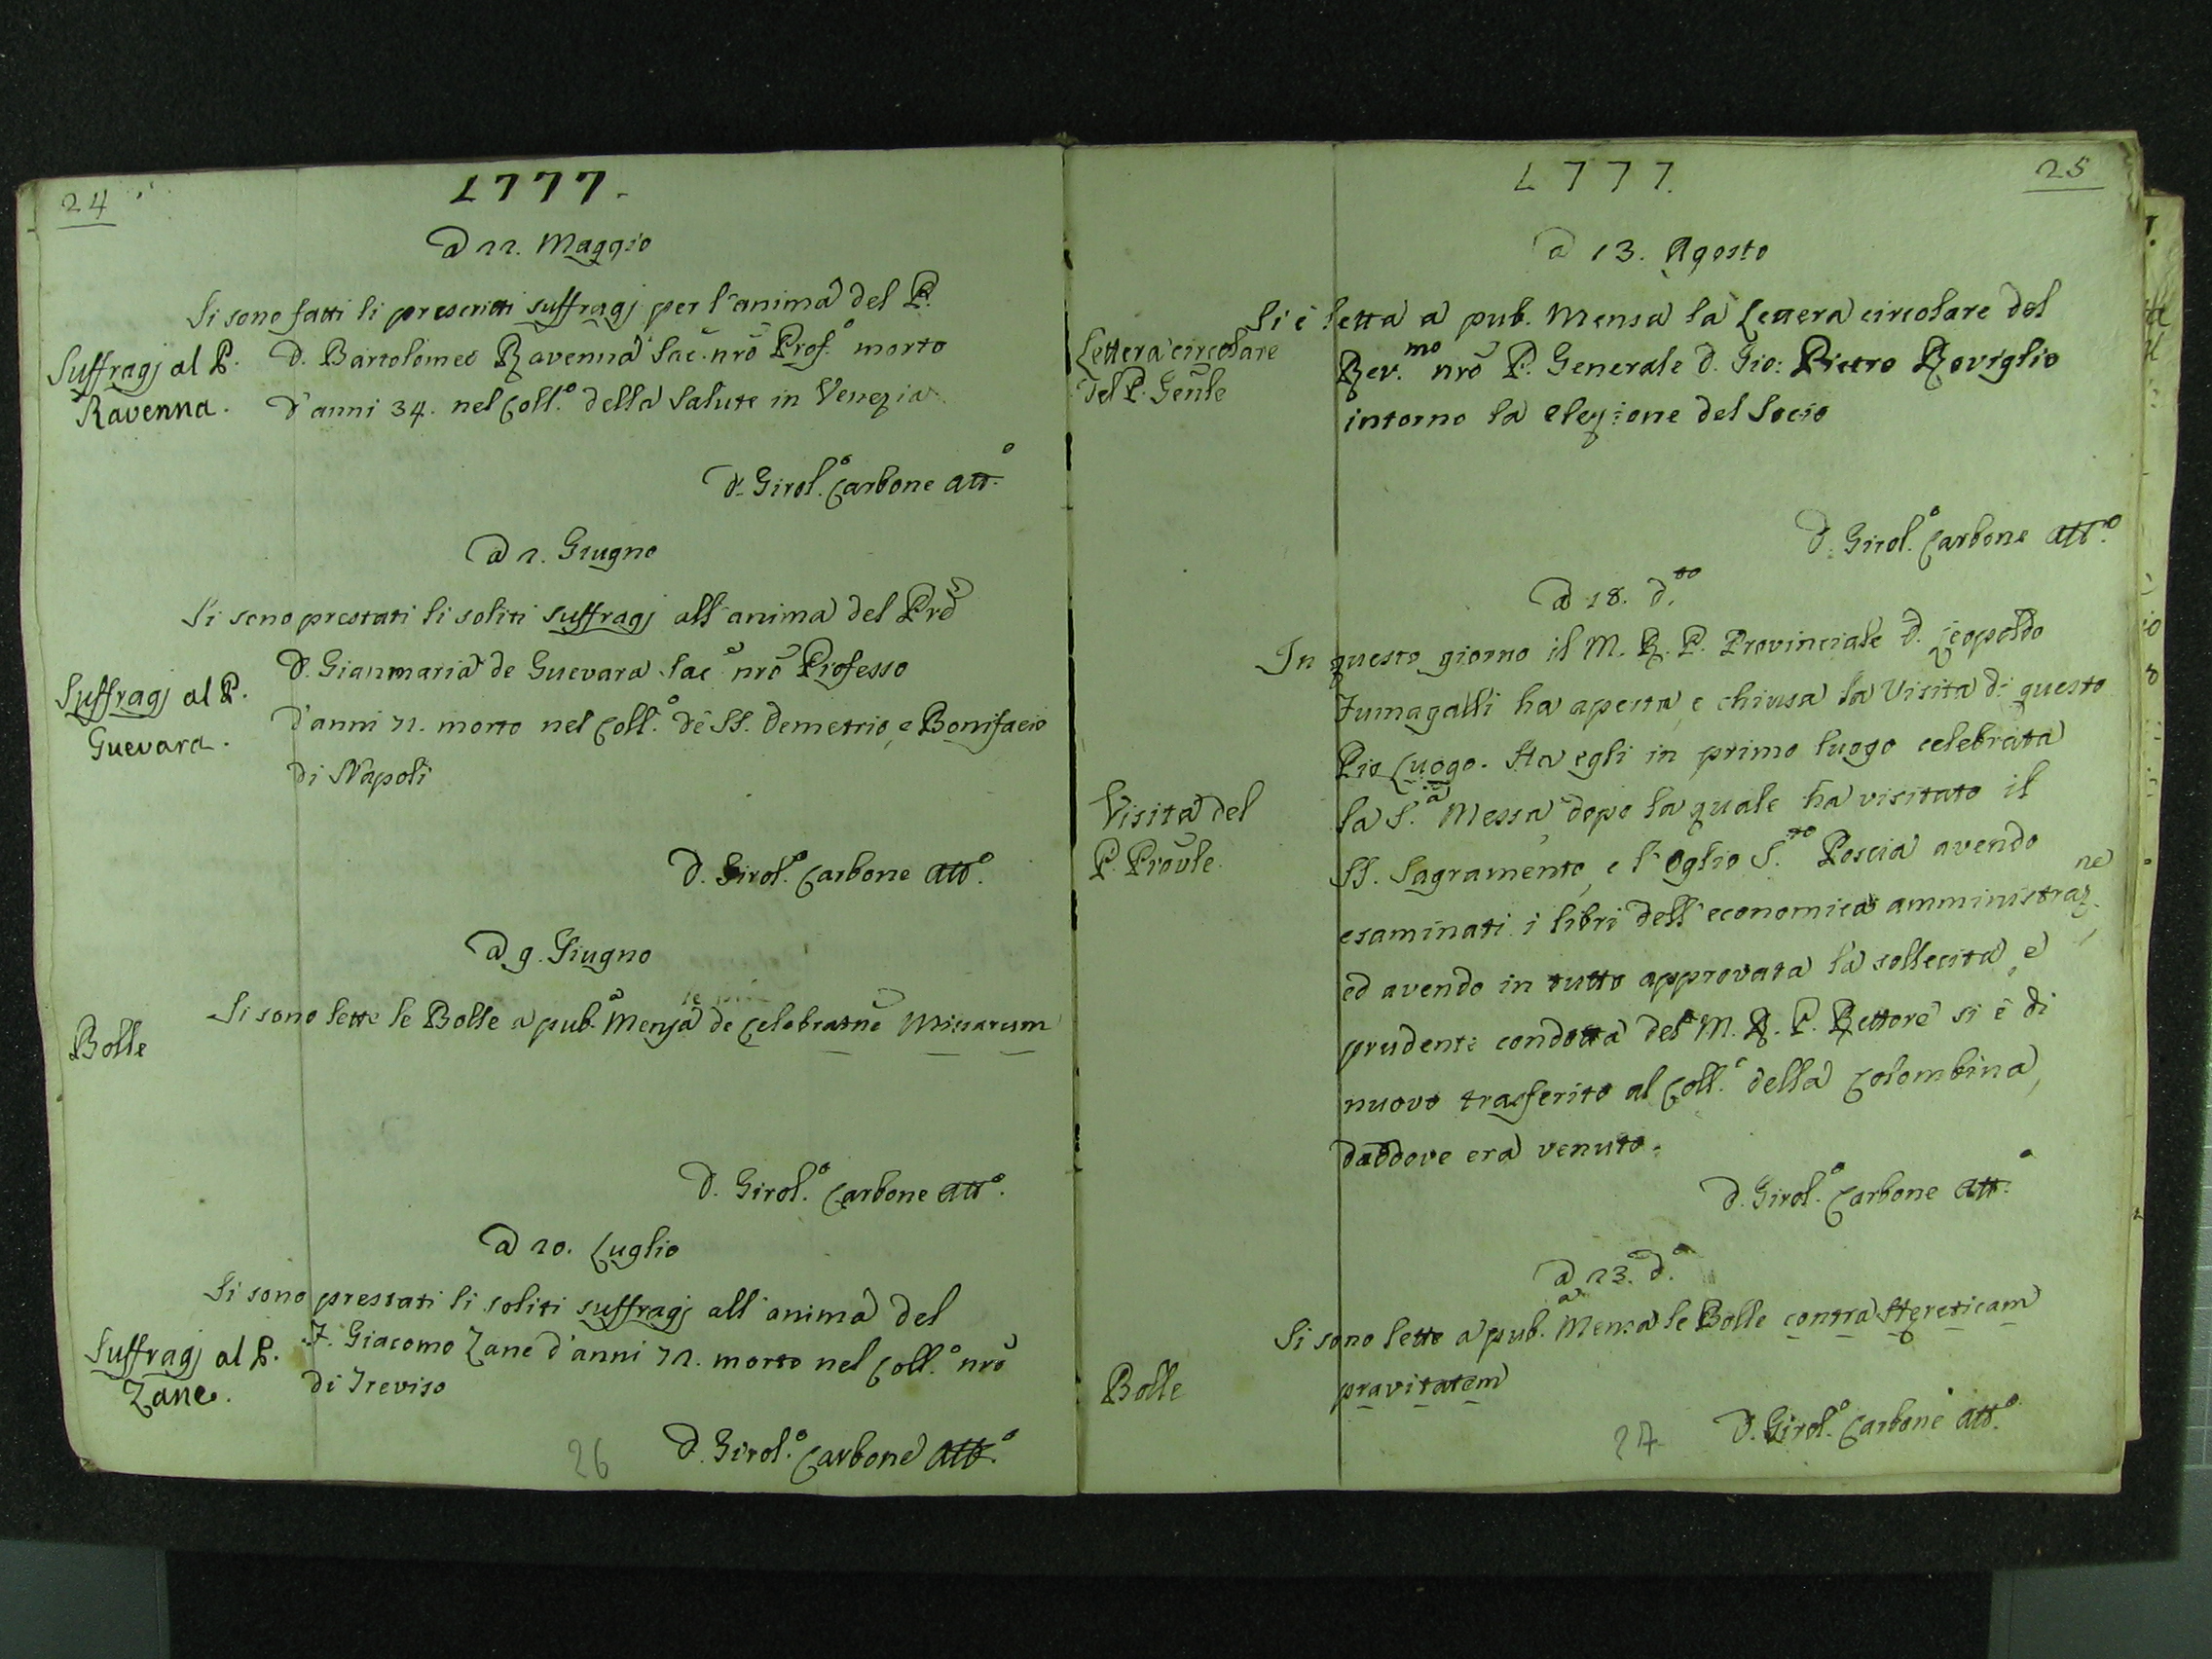 24
1777.
A 22. Maggio
Si sono fatti li prescritti suffragj per l'anima del P.
Suffragj al P.
Ravenna.
D. Bartolomeo Ravenna Sac. nrõ Prof.o morto
d'anni 34. nel Coll.o della Salute in Venezia.
D. Girol.o Carbone Att.o
A 2. Giugno
Si sono prestati li soliti suffragj all'anima del Prẽ
Suffragj al P.
Guevara.
D. Gianmaria de Guevara Sac. nrõ Professo
d'anni 72. morto nel Coll.o de SS. Demetrio, e Bonifacio
di Napoli
D. Girol.o Carbone Att.o
A 9. Giugno
Bolle
Si sono lette le Bolle a pub.a Mensa de Celebratnẽ Missarum
D. Girol.o Carbone Att.o
A 20. Luglio
Si sono prestati li soliti suffragj all'anima del
Suffragj al P.
Zane.
F. Giacomo Zane d'anni 72. morto nel Coll.o nrõ
di Treviso
D. Girol.o Carbone Att.o
26
1777.
25
A 13. Agosto
Si è letta a pub. Mensa la Lettera circolare del
Lettera circolare
del P. Genl̃e
Rev.mo nrõ P. Generale D. Gio: Pietro Roviglio
intorno la elezione del Socio
D. Girol.o Carbone Att.o
A 18. d.to
In questo giorno il M. R. P. Provinciale D. Leopoldo
Fumagalli ha aperta, e chiusa la Visita di questo
Pio Luogo. Ha egli in primo luogo celebrata
Visita del
P. Provl̃e
la S.a Messa, dopo la quale ha visitato il
SS. Sagramento, e l'Oglio S.to Poscia avendo
esaminati i libri dell'economica amministraz.ne
ed avendo in tutto approvata la sollecita, e
prudente condotta del M. R. P. Rettore si è di
nuovo trasferito al Coll.o della Colombina,
daddove era venuto.
D. Girol.o Carbone Att.o
A 23. d.o
Si sono lette a pub.a Mensa le Bolle contra Hereticam
Bolle
pravitatem
D. Girol.o Carbone Att.o
27